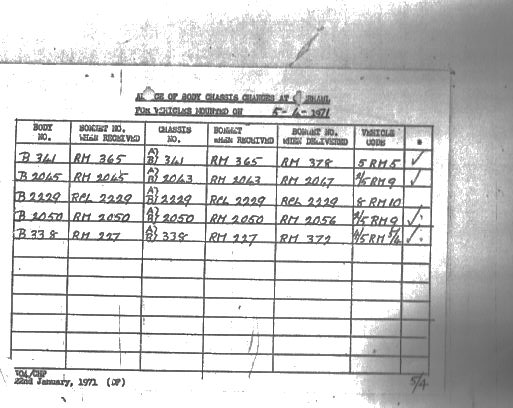 OF BODY CHASSIS CHANGES AT
FOR VEHICLES MOUNTED ON 5-4-1971
BODY NO. BONNET NO. WHEN RECEIVED CHASSIS NO. BONNET WHEN RECEIVED BONNET NO. WHEN DELIVERED VEHICLE CODE *
B 341 RM 365 A) B) 341 RM 365 RM 378 5 RM 5 ✓
B 2045 RM 2045 A) B) 2043 RM 2043 RM 2067 2/5 RM 9 ✓
B 2229 RCL 2229 A) B) 2229 RCL 2229 RCL 2229 8 RM 10
B 2050 RM 2050 A) B) 2050 RM 2050 RM 2056 2/5 RM 9 ✓
B 338 RM 227 A) B) 338 RM 227 RM 372 ✓
VOA/CHP
22nd January, 1971 (DP) 5/4